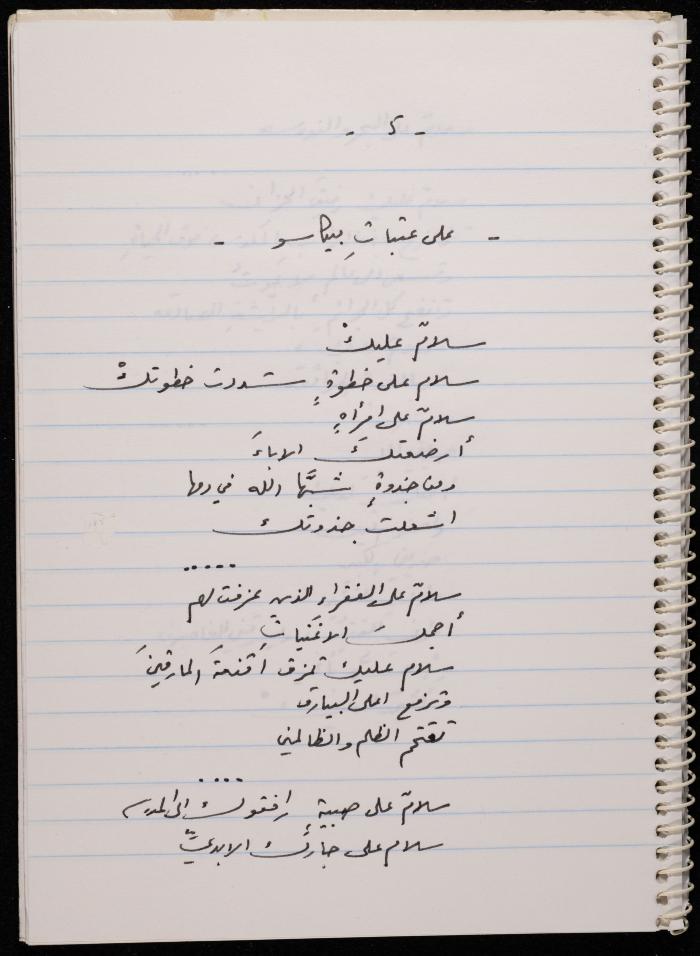 - ٥ -
- على عتباتِ بيكاسو -
سلامٌ عليكْ
سلام على خطوةٍ سددت خطوتكْ
سلامٌ على امرأهٍ
أرضعتكَ الاباءَ
ومن جذوةٍ شبَّها الله في دمها
اشعلت جذوتك
.....
سلامٌ على الفقراء الذين عزفت لهم
أجملَ الاغنياتِ
سلام عليك تمزق اقنعةَ المارقينَ
وترفع اعلى البيارق
تقتحم الظلم والظالمين
....
سلامٌ على صبيةٍ رافقوك الى المدرسه
سلام على جارك الابديِّ